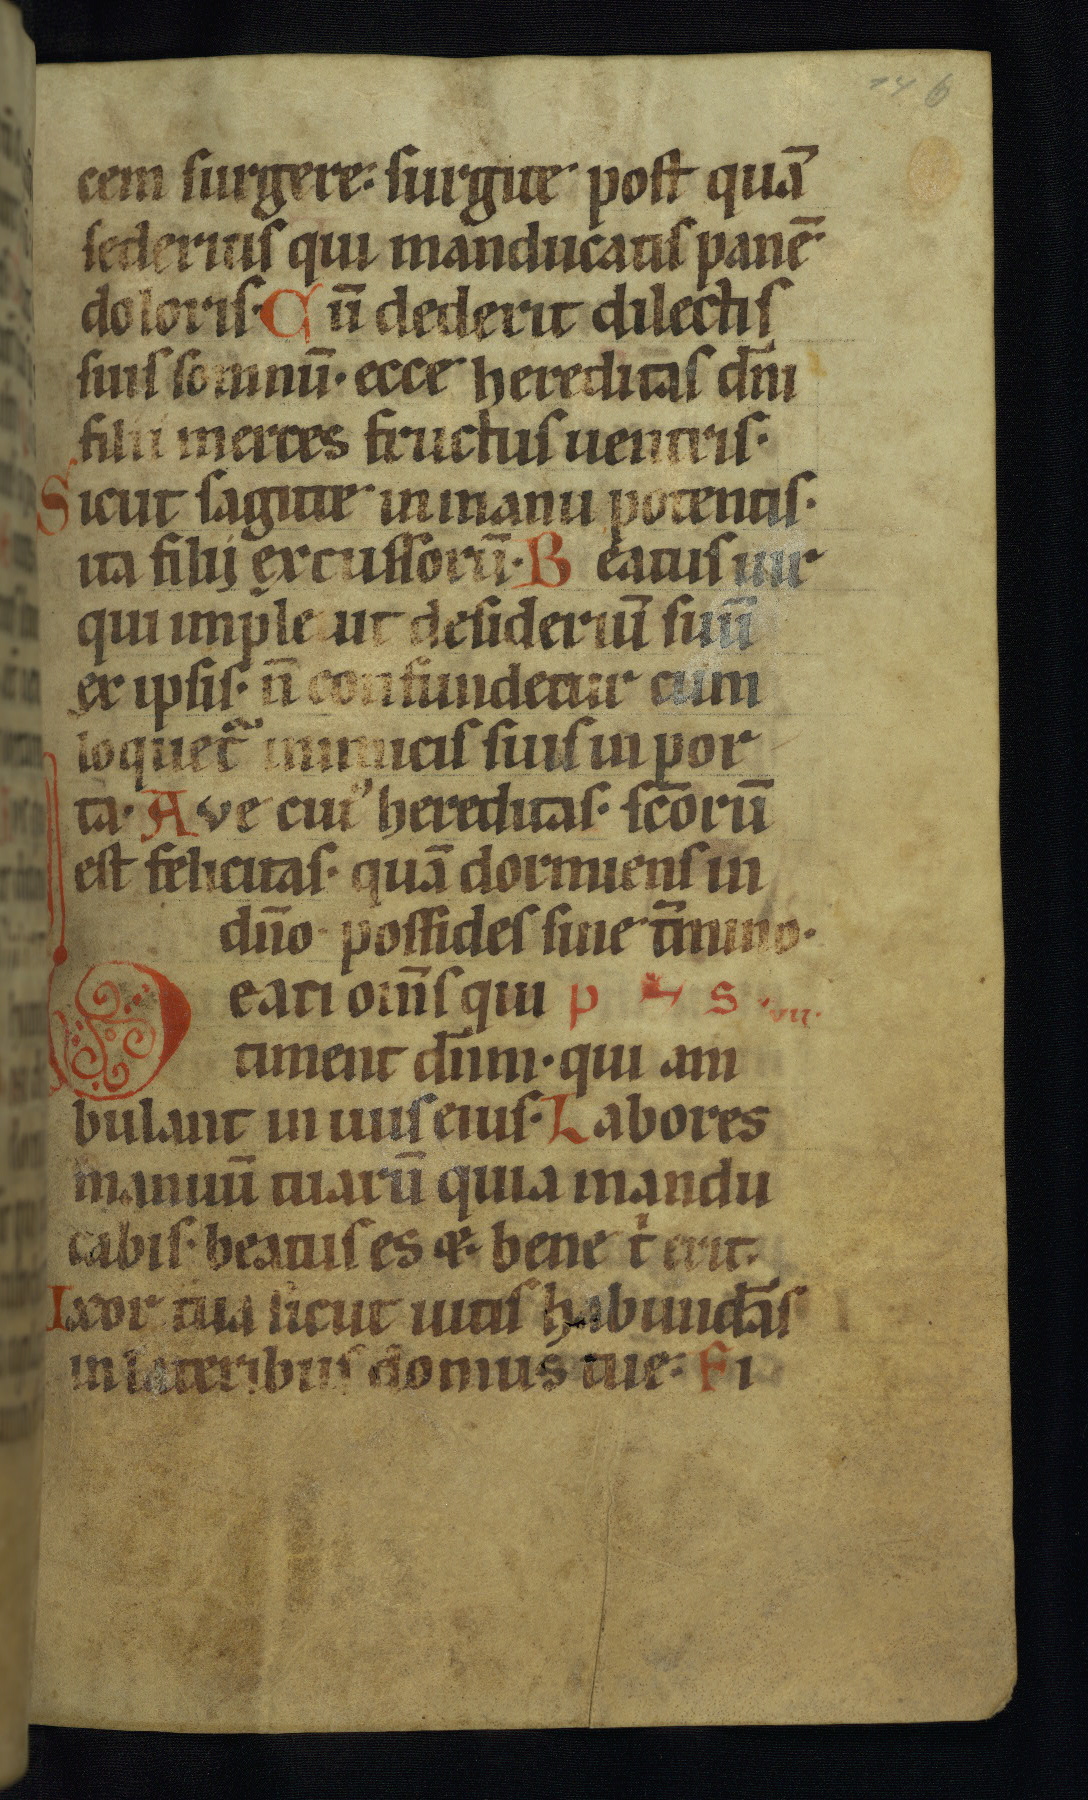 146
cem surgere: surgite post quā
sederitis qui manducatis panē
doloris· Cū dederit dilectis
suis somnū· ecce hereditas dn̄i
filii merces fructus uentris·
Sicut sagitte in manu potentis·
ita filij excussorū· Beatus uir
qui impleuit desideriū suū
ex ipsis· n̄ confundetur cum
loquet̃ inimicis suis in por
ta· Ave cui᾽ hereditas· sc̄orū
est felicitas· quā dormiens in
dn̄o· possides sine t̄mino·
Beati om̄s qui p s ·vii·
timent dn̄m· qui am
bulant in uiis eius· Labores
manuū tuarū quia mandu
cabis· beatus es &· bene t erit·
Uxor tua sicut uitis habundās
in lateribus domus tue: Fi